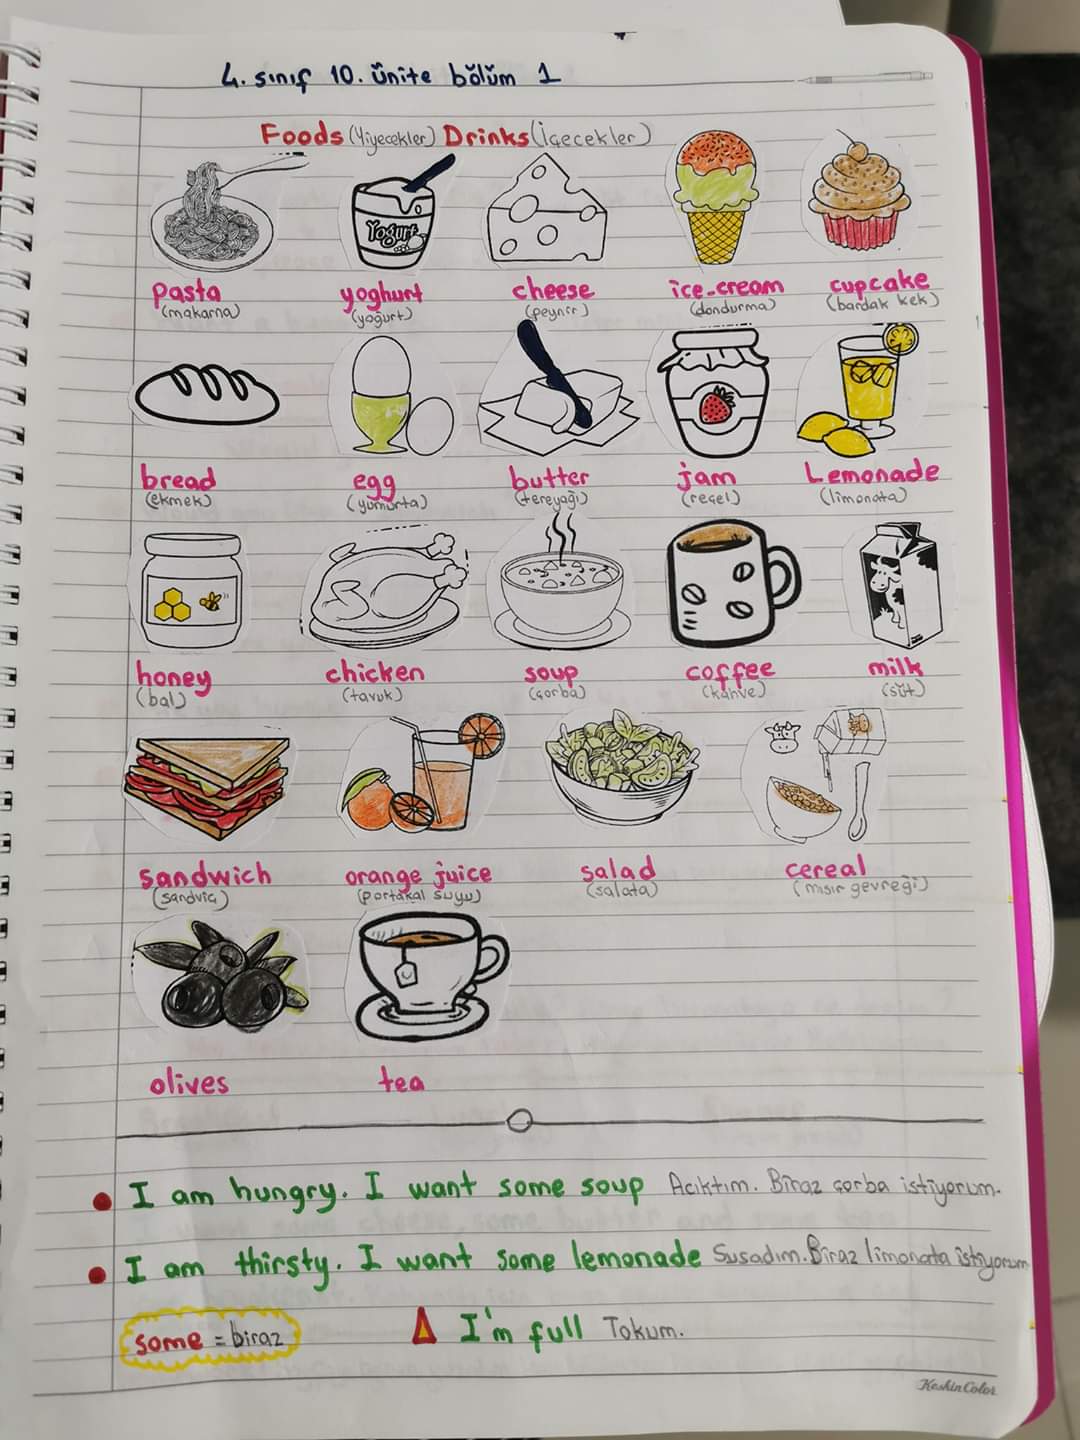 4. sınıf 10. ünite bölüm 1
Foods (Yiyecekler) Drinks (İçecekler)
Yogurt
pasta yoghurt cheese ice-cream cupcake
(makarna) (yoğurt) (peynir) (dondurma) (bardak kek)
bread egg butter jam Lemonade
(ekmek) (yumurta) (tereyağı) (reçel) (limonata)
honey chicken soup coffee milk
(bal) (tavuk) (çorba) (kahve) (süt)
sandwich orange juice salad cereal
(sandviç) (portakal suyu) (salata) (mısır gevreği)
olives tea
I am hungry. I want some soup Acıktım. Biraz çorba istiyorum.
I am thirsty. I want some lemonade Susadım. Biraz limonata istiyorum
some = biraz I'm full Tokum.
KeskinColor